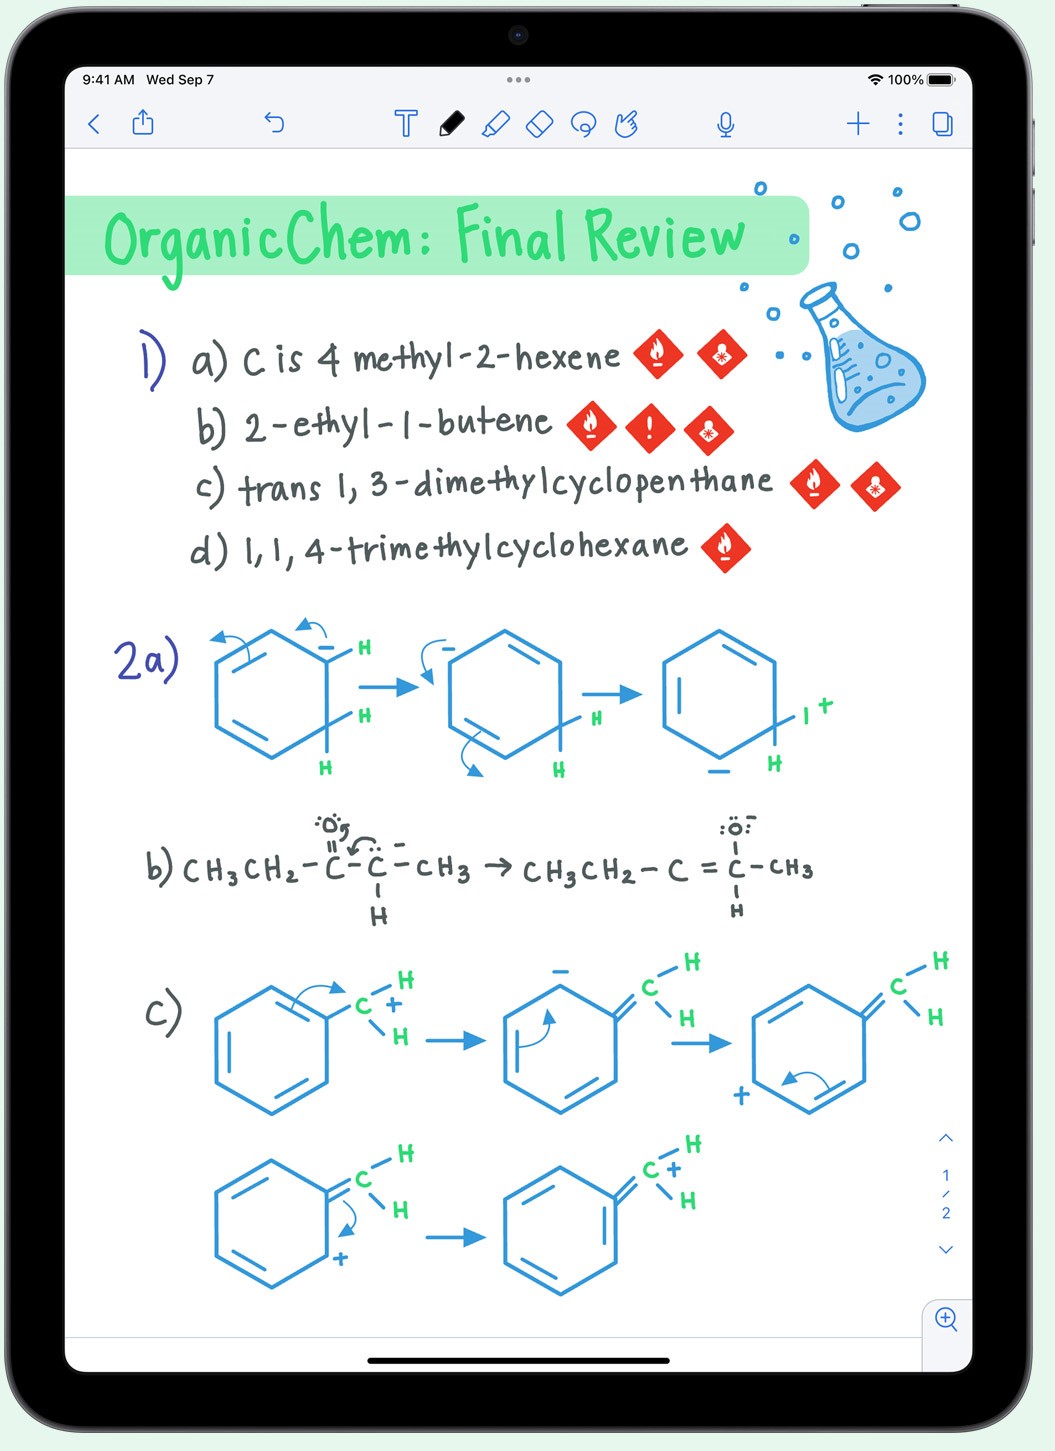 9:41 AM Wed Sep 7
100%
T
Organic Chem: Final Review
1) a) C is 4 methyl-2-hexene
b) 2-ethyl-1-butene
!
c) trans 1, 3-dimethylcyclopenthane
d) 1, 1, 4-trimethylcyclohexane
2a)
− H
H
H
−
H
H
I +
H
−
b) CH₃CH₂-C-C-CH₃ → CH₃CH₂-C=C-CH₃
:Ö: −
H
:Ö: −
H
c)
H
C +
H
−
H
C
H
H
C
H
+
H
C
H
+
H
C +
H
1
/
2